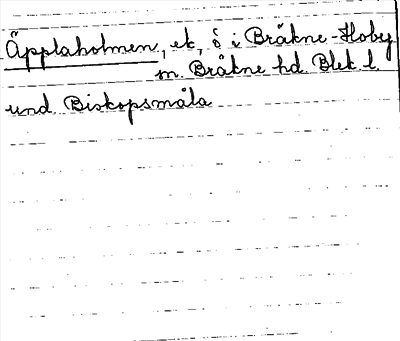 Äpplaholmen, ek, ö i Bräkne-Hoby
sn. Bräkne hd Blek. l.
und Biskopsmåla